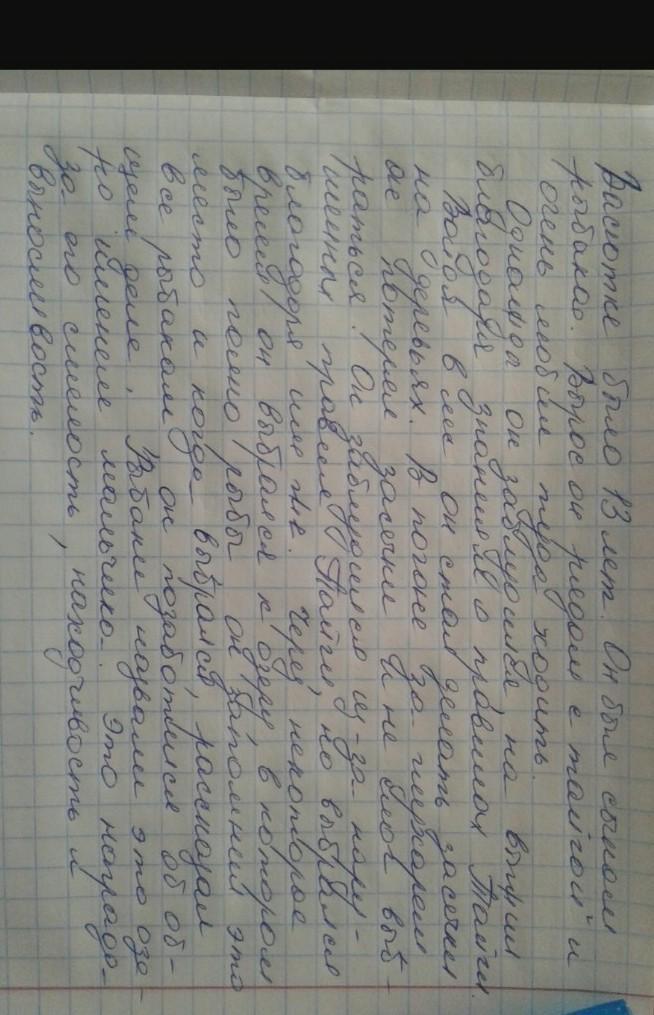 Васютке было 13 лет. Он был сыном
рыбака. Вырос он рядом с тайгой и
очень любил туда ходить.
Однажды он заблудился на выжил
благодаря знаниям о правилах Тайги.
Войдя в лес он стал делать засечки
на деревьях. В погоне за глухарем
он потерял засечки и не смог выб-
раться. Он заблудился из-за нару-
шения правил Тайги, но выбрался
благодаря им же. Через некоторое
время он выбрался к озеру, в котором
было полно рыбы он запомнил это
место и когда выбрался, рассказал
все рыбакам он позаботился об об-
щем деле. Рыбаки назвали это озе-
ро именем мальчика. Это награда-
за его смелость, находчивость и
выносливость.